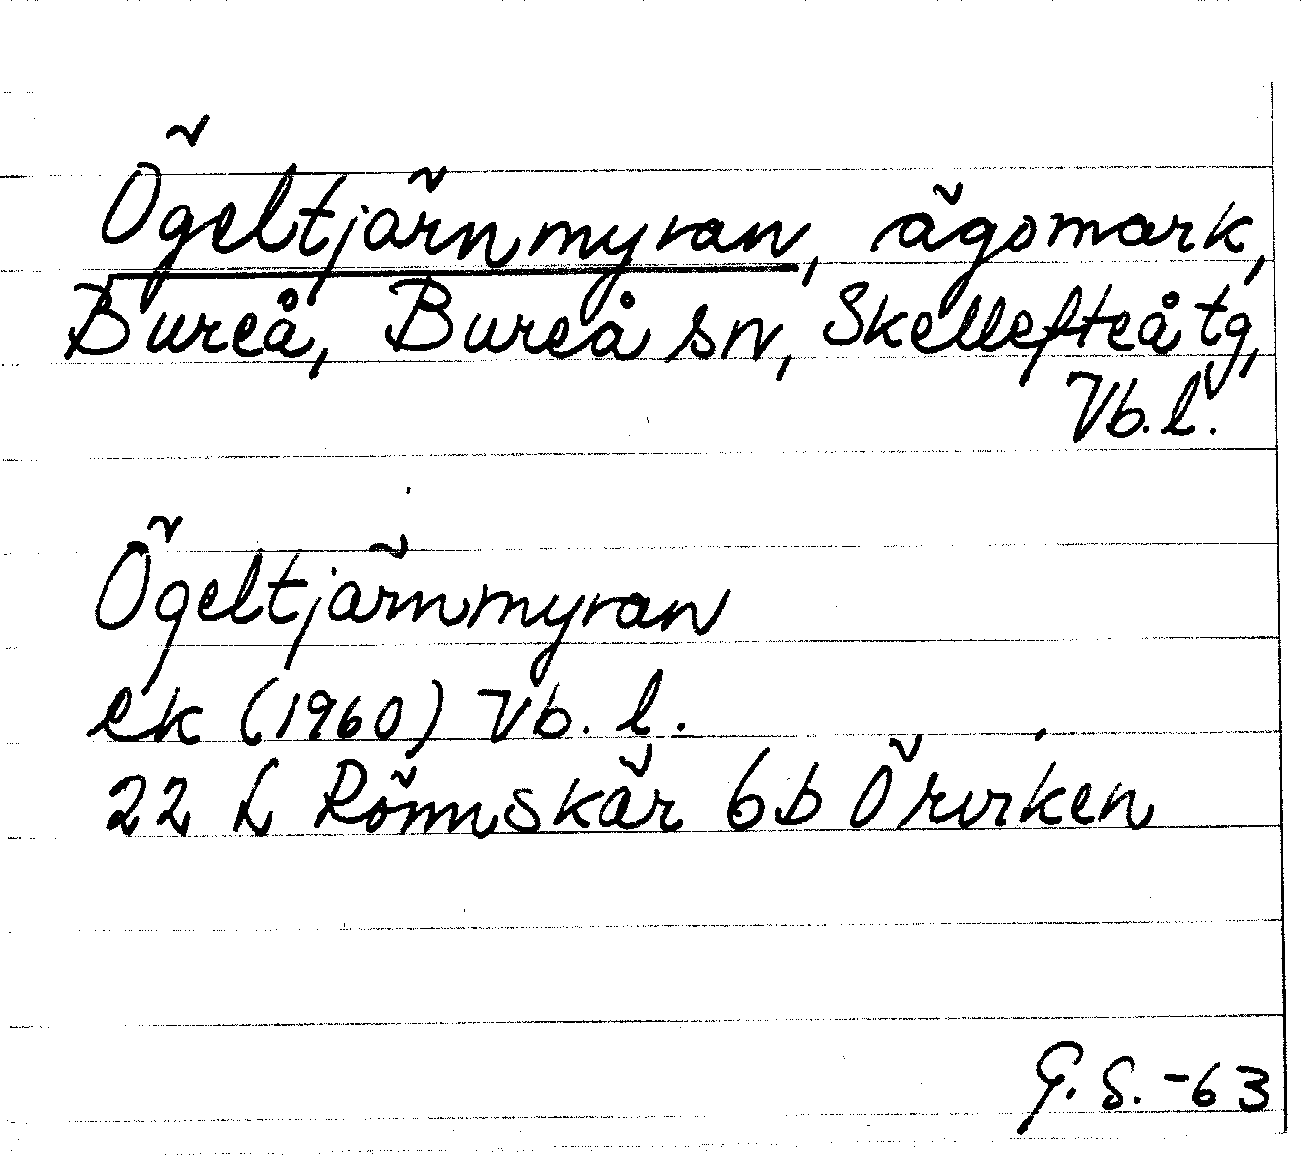 Ögeltjärnmyran, ägomark,
Bureå, Bureå sn, Skellefteå tg,
Vb. l.
Ögeltjärnmyran
ek (1960) Vb. l.
22 L Rönnskär 6b Örviken
G. S. -63